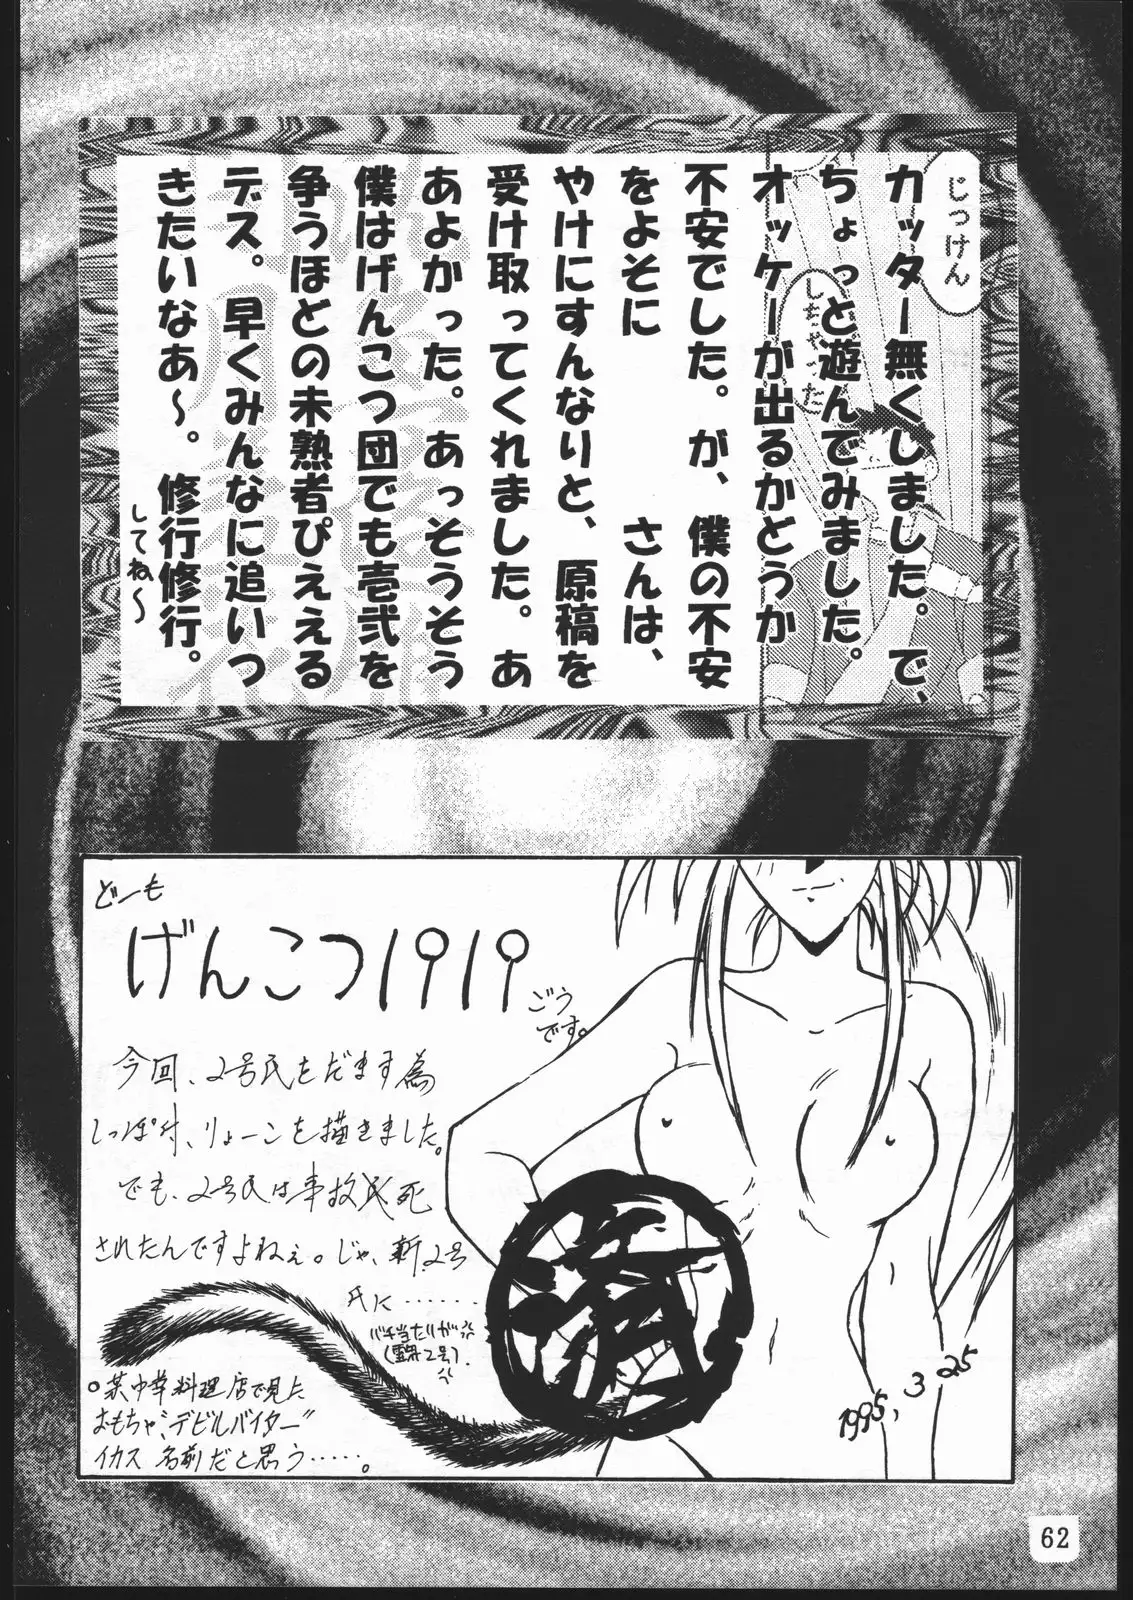 じっけん
しちゃった
カッター無くしました。で、
ちょっと遊んでみました。
オッケーが出るかどうか
不安でした。が、僕の不安
をよそに　　　さんは、
やけにすんなりと、原稿を
受け取ってくれました。あ
あよかった。あっそうそう
僕はげんこつ団でも壱弐を
争うほどの未熟者ぴええる
デス。早くみんなに追いつ
きたいなあ～。修行修行。
してね～
どーも
げんこつ1919
ごう
です。
今回、2号氏をだます為
しっぽ付、りょーこを描きました。
でも、2号氏は事故死
されたんですよねぇ。じゃ、新2号
氏に……
バチ当たりが
(霊界2号)
済
1995,3,25
。某中華料理店で見た
おもちゃ、"デビルバイター"
イカス名前だと思う……。
62